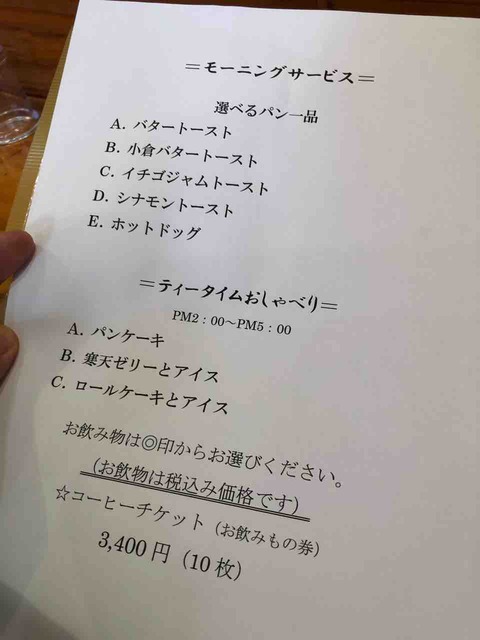 ＝モーニングサービス＝
選べるパン一品
A. バタートースト
B. 小倉バタートースト
C. イチゴジャムトースト
D. シナモントースト
E. ホットドッグ
＝ティータイムおしゃべり＝
PM2：00～PM5：00
A. パンケーキ
B. 寒天ゼリーとアイス
C. ロールケーキとアイス
お飲み物は◎印からお選びください。
（お飲物は税込み価格です）
☆コーヒーチケット（お飲みもの券）
3,400円（10枚）